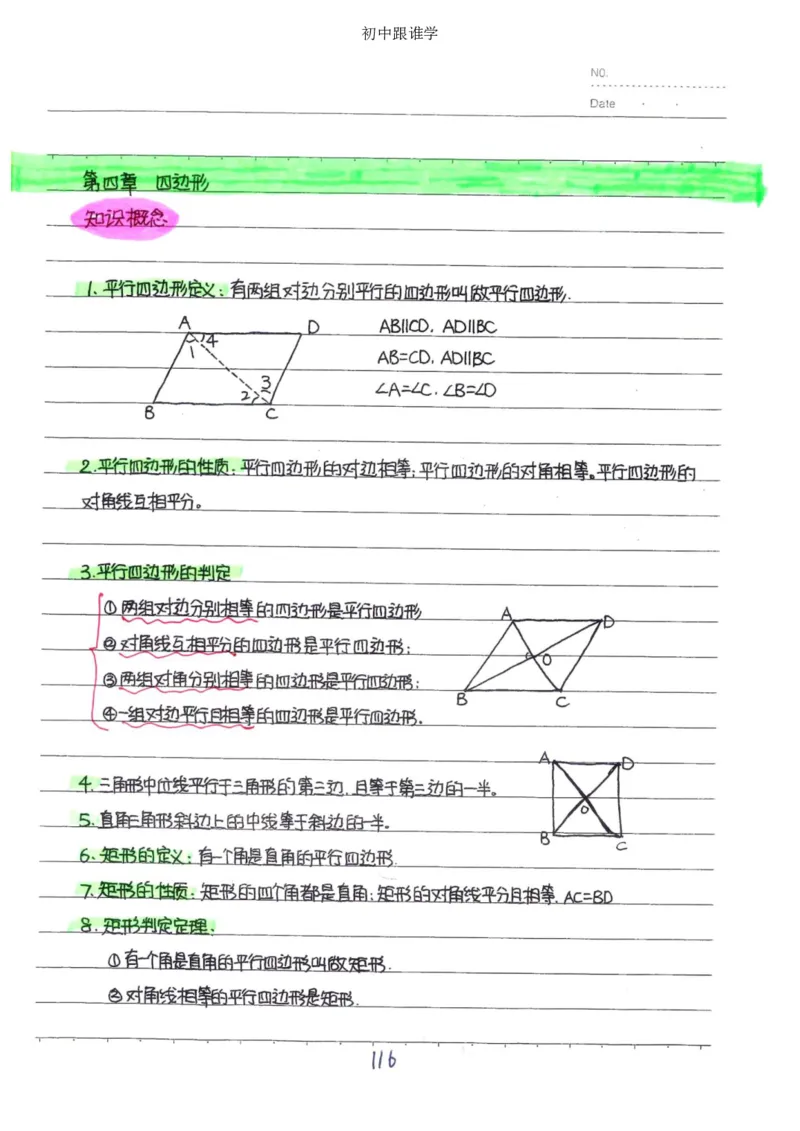 初中跟谁学
NO.
Date
第四章 四边形
知识概念
1、平行四边形定义：有两组对边分别平行的四边形叫做平行四边形.
A D
1 4
2 3
B C
AB∥CD，AD∥BC
AB=CD，AD∥BC
∠A=∠C，∠B=∠D
2.平行四边形的性质：平行四边形的对边相等；平行四边形的对角相等。平行四边形的
对角线互相平分。
3.平行四边形的判定
①两组对边分别相等的四边形是平行四边形
②对角线互相平分的四边形是平行四边形；
③两组对角分别相等的四边形是平行四边形；
④一组对边平行且相等的四边形是平行四边形.
A D
O
B C
4.三角形中位线平行于三角形的第三边，且等于第三边的一半。
5.直角三角形斜边上的中线等于斜边的一半。
6、矩形的定义：有一个角是直角的平行四边形.
A D
O
B C
7.矩形的性质：矩形的四个角都是直角；矩形的对角线平分且相等. AC=BD
8.矩形判定定理.
①有一个角是直角的平行四边形叫做矩形.
②对角线相等的平行四边形是矩形.
116